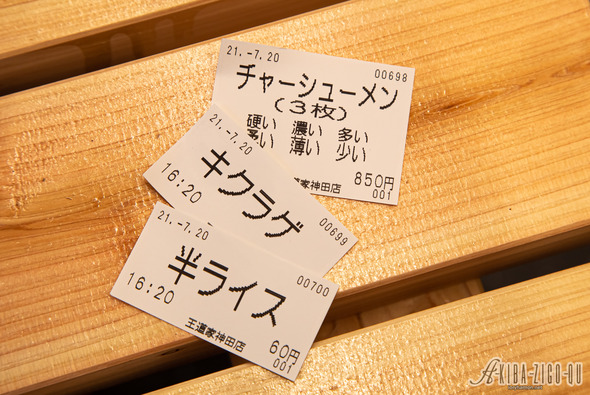 21.-7.20
00698
チャーシューメン
(3枚)
硬い 濃い 多い
薄い 少い
850円
道家神田店
001
21.-7.20
キクラゲ
16:20
00699
21.-7.20
半ライス
00700
16:20
王道家神田店
60円
001
AKIBA-ZIGO-OU